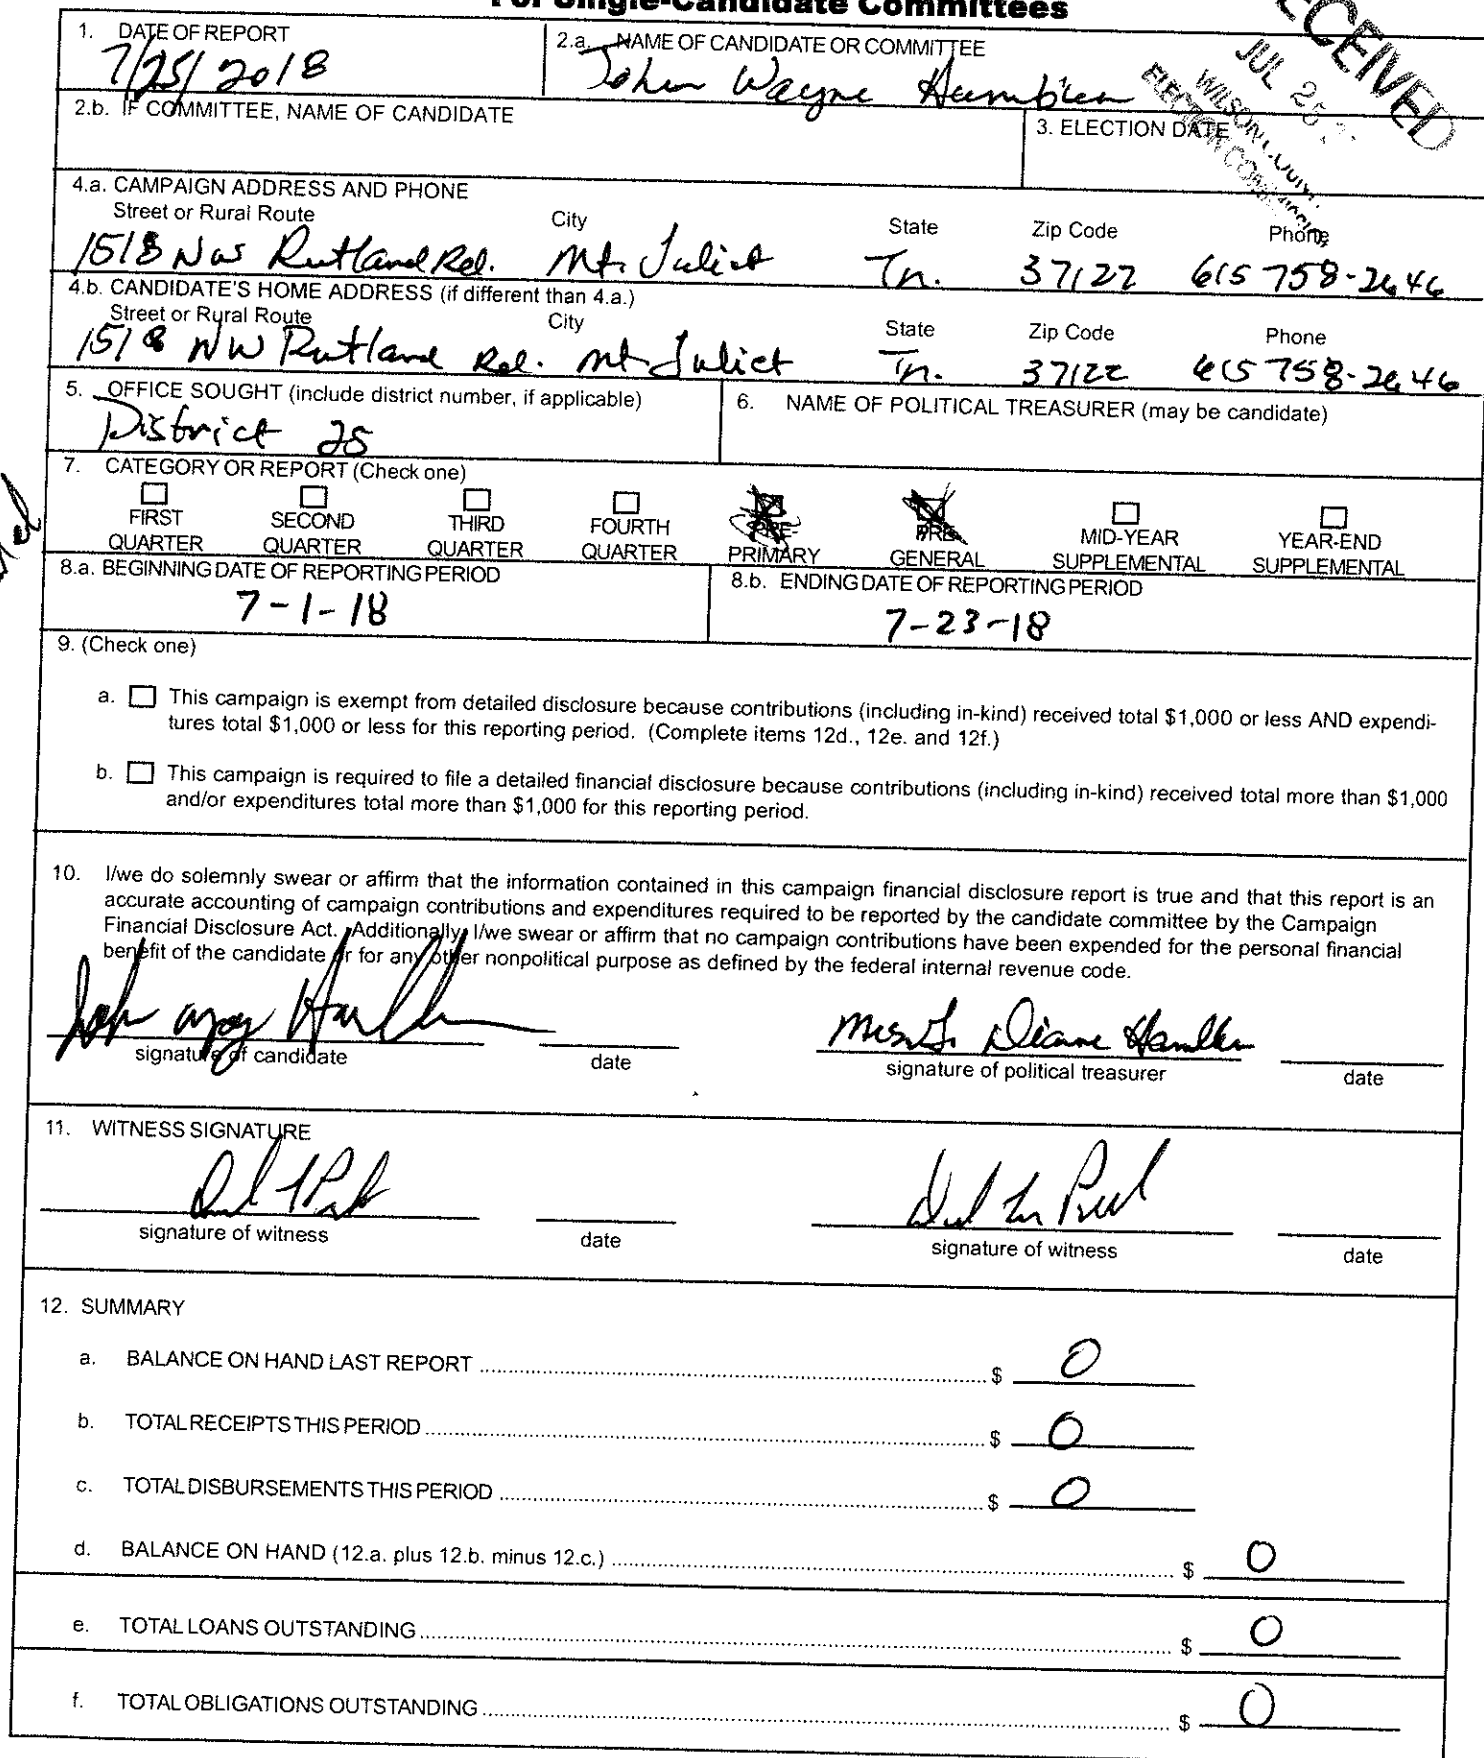 For Single-Candidate Committees
RECEIVED
JUL 25
WILSON COUNTY
ELECTION COMMISSION
1. DATE OF REPORT
7/25/2018
2.a. NAME OF CANDIDATE OR COMMITTEE
John Wayne
2.b. IF COMMITTEE, NAME OF CANDIDATE
3. ELECTION DATE
4.a. CAMPAIGN ADDRESS AND PHONE
Street or Rural Route City State Zip Code Phone
1518 Rutland Rd. Mt. Juliet Tn. 37122 615 758-2646
4.b. CANDIDATE'S HOME ADDRESS (if different than 4.a.)
Street or Rural Route City State Zip Code Phone
1518 NW Rutland Rd. Mt Juliet Tn. 37122 615 758-2646
5. OFFICE SOUGHT (include district number, if applicable)
District 25
6. NAME OF POLITICAL TREASURER (may be candidate)
7. CATEGORY OR REPORT (Check one)
FIRST QUARTER
SECOND QUARTER
THIRD QUARTER
FOURTH QUARTER
PRE-PRIMARY
PRE-GENERAL
MID-YEAR SUPPLEMENTAL
YEAR-END SUPPLEMENTAL
8.a. BEGINNING DATE OF REPORTING PERIOD
7-1-18
8.b. ENDING DATE OF REPORTING PERIOD
7-23-18
9. (Check one)
a. This campaign is exempt from detailed disclosure because contributions (including in-kind) received total $1,000 or less AND expendi-
tures total $1,000 or less for this reporting period. (Complete items 12d., 12e. and 12f.)
b. This campaign is required to file a detailed financial disclosure because contributions (including in-kind) received total more than $1,000
and/or expenditures total more than $1,000 for this reporting period.
10. I/we do solemnly swear or affirm that the information contained in this campaign financial disclosure report is true and that this report is an
accurate accounting of campaign contributions and expenditures required to be reported by the candidate committee by the Campaign
Financial Disclosure Act. Additionally, I/we swear or affirm that no campaign contributions have been expended for the personal financial
benefit of the candidate or for any other nonpolitical purpose as defined by the federal internal revenue code.
Diane
signature of candidate date signature of political treasurer date
11. WITNESS SIGNATURE
signature of witness date signature of witness date
12. SUMMARY
a. BALANCE ON HAND LAST REPORT $ 0
b. TOTAL RECEIPTS THIS PERIOD $ 0
c. TOTAL DISBURSEMENTS THIS PERIOD $ 0
d. BALANCE ON HAND (12.a. plus 12.b. minus 12.c.) $ 0
e. TOTAL LOANS OUTSTANDING $ 0
f. TOTAL OBLIGATIONS OUTSTANDING $ 0